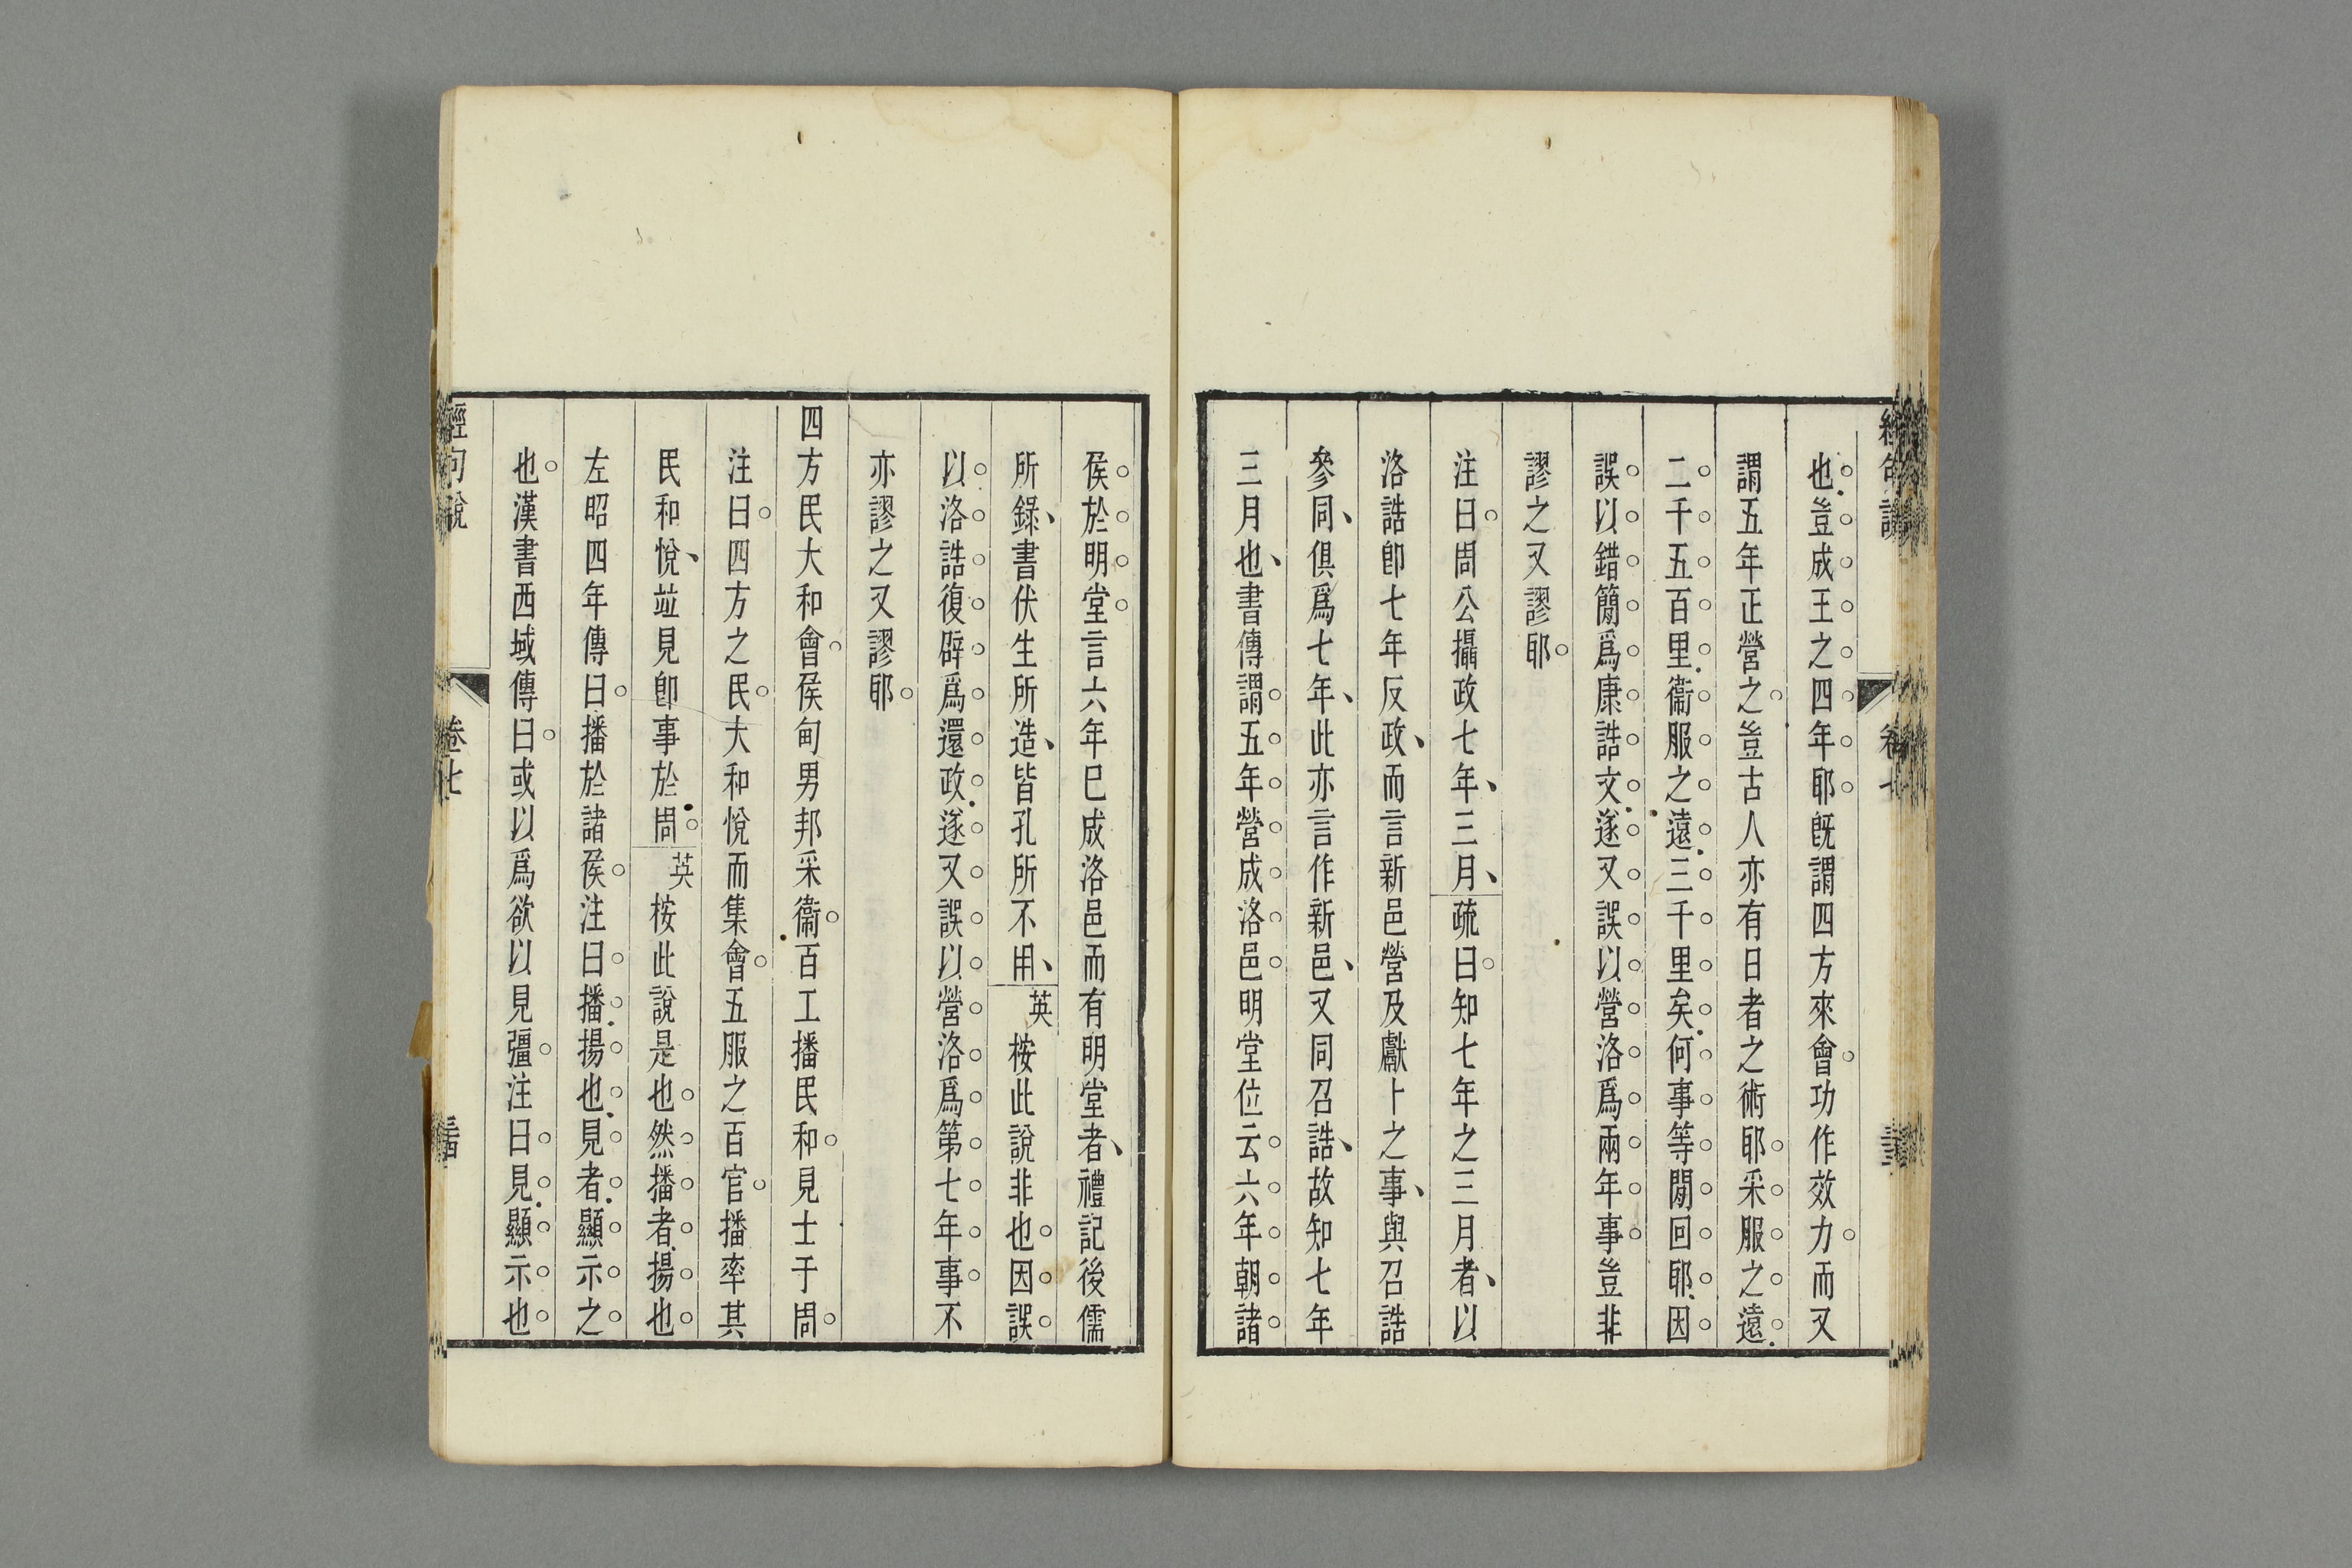 也豈成王之四年耶旣謂四方來會功作效力而又
謂五年正營之豈古人亦有日者之術耶采服之遠
二千五百里衞服之遠三千里矣何事等閒回耶因
誤以錯簡爲康誥文遂又誤以營洛爲兩年事豈非
謬之又謬耶
注曰周公攝政七年三月疏曰知七年之三月者以
洛誥卽七年反政而言新邑營及獻卜之事與召誥
參同俱爲七年此亦言作新邑又同召誥故知七年
三月也書傳謂五年營成洛邑明堂位云六年朝諸
侯於明堂言六年巳成洛邑而有明堂者禮記後儒
所錄書伏生所造皆孔所不用英桉此說非也因誤
以洛誥復辟爲還政遂又誤以營洛爲第七年事不
亦謬之又謬耶
四方民大和會侯甸男邦采衞百工播民和見士于周
注曰四方之民大和悅而集會五服之百官播率其
民和悅竝見卽事於周英桉此說是也然播者揚也
左昭四年傳曰播於諸侯注曰播揚也見者顯示之
也漢書西域傳曰或以爲欲以見彊注曰見顯示也
經句說 卷七